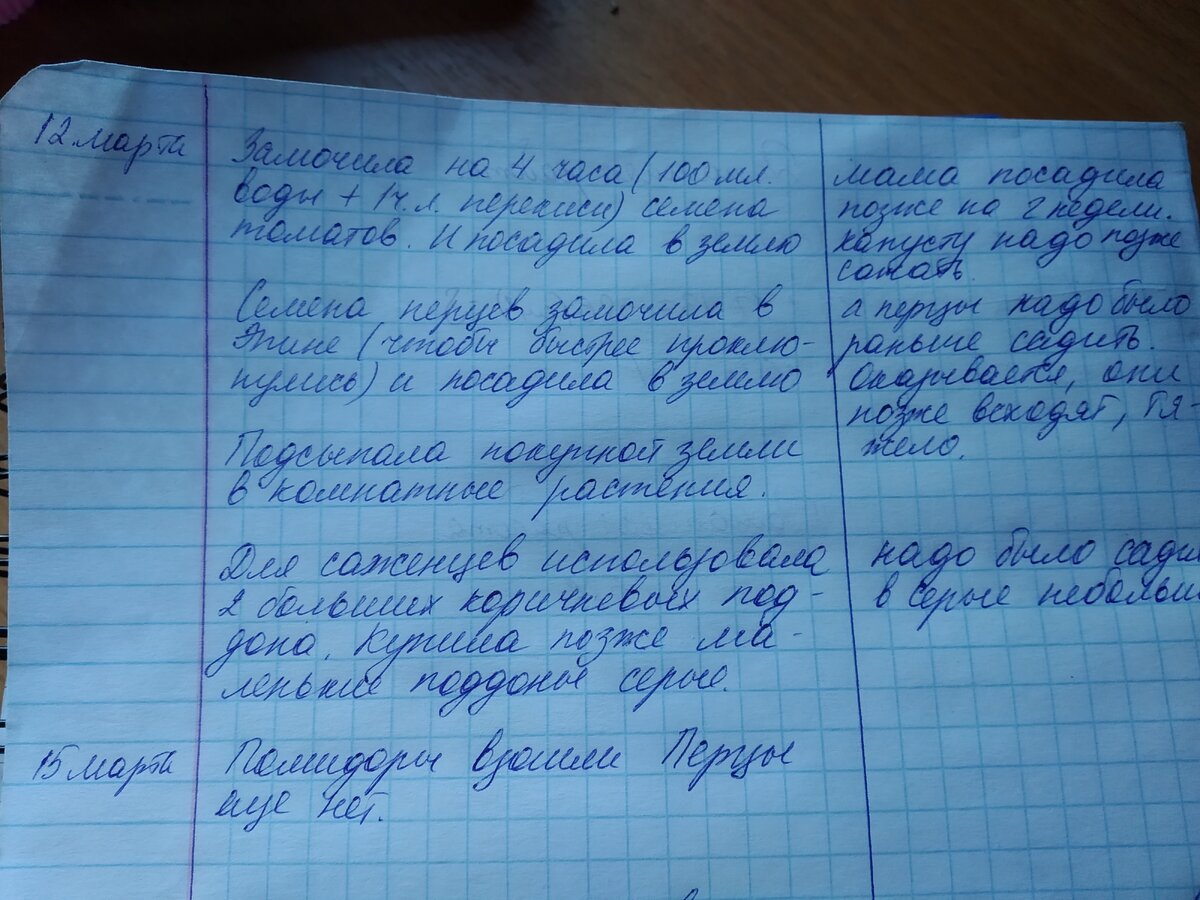 12 марта
Замочила на 4 часа (100 мл.
воды + 1 ч.л. перекиси) семена
томатов. И посадила в землю
Семена перцев замочила в
Эпине (чтобы быстрее проклю-
нулись) и посадила в землю
Подсыпала покупной земли
в комнатные растения.
Для саженцев использовала
2 больших коричневых под-
дона. Купила позже ма-
ленькие поддоны серые.
мама посадила
позже на 2 недели.
капусту надо позже
сажать.
а перцы надо было
раньше садить.
Оказывается, они
позже всходят, тя-
жело.
надо было сади
в серые небольш
15 марта
Помидоры взошли Перцы
еще нет.